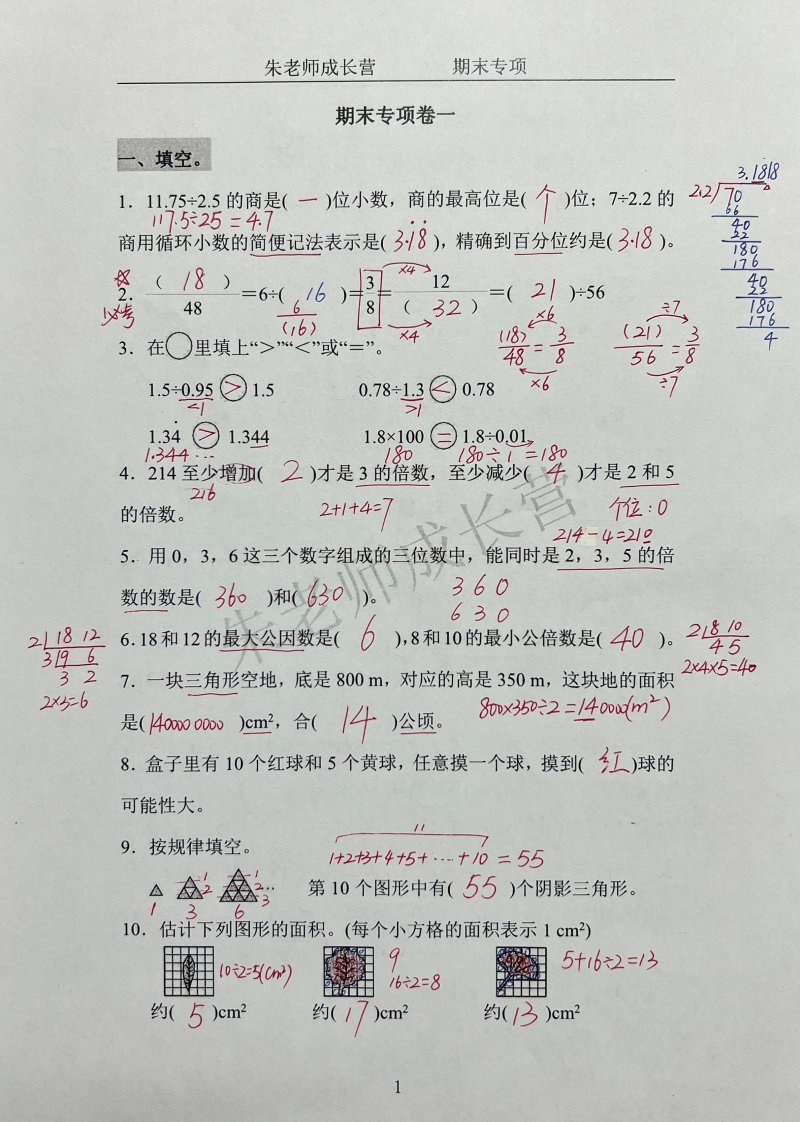 朱老师成长营 期末专项
期末专项卷一
一、填空。
3.1818
2.2 70
66
40
22
180
176
40
22
180
176
4
1．11.75÷2.5 的商是( 一 )位小数，商的最高位是( 个 )位；7÷2.2 的
117.5÷25=4.7
商用循环小数的简便记法表示是( 3.1̇8̇ )，精确到百分位约是( 3.18 )。
☆
必考
2．( 18 )/48＝6÷( 16 )＝3/8＝12/( 32 )＝( 21 )÷56
6/(16)
×4
×4
×6
(18)/48=3/8
×6
÷7
(21)/56=3/8
÷7
3．在○里填上“＞”“＜”或“＝”。
1.5÷0.95 > 1.5 0.78÷1.3 < 0.78
<1 >1
1.34̇ > 1.344 1.8×100 = 1.8÷0.01
1.344··· 180 180÷1=180
4．214 至少增加( 2 )才是 3 的倍数，至少减少( 4 )才是 2 和 5
216
的倍数。 2+1+4=7 个位:0
214-4=210
5．用 0，3，6 这三个数字组成的三位数中，能同时是 2，3，5 的倍
数的数是( 360 )和( 630 )。 3 6 0
6 3 0
6.18 和 12 的最大公因数是( 6 )，8 和 10 的最小公倍数是( 40 )。
2 18 12
3 9 6
3 2
2×3=6
2 8 10
4 5
2×4×5=40
7．一块三角形空地，底是 800 m，对应的高是 350 m，这块地的面积
是( 1400000000 )cm²，合( 14 )公顷。 800×350÷2=140000(m²)
8．盒子里有 10 个红球和 5 个黄球，任意摸一个球，摸到( 红 )球的
可能性大。
9．按规律填空。
11
1+2+3+4+5+····+10=55
1 2 1 2 3 ···
第 10 个图形中有( 55 )个阴影三角形。
1 3 6
10．估计下列图形的面积。(每个小方格的面积表示 1 cm²)
10÷2=5(cm²) 9 5+16÷2=13
16÷2=8
约( 5 )cm² 约( 17 )cm² 约( 13 )cm²
朱老师成长营
1